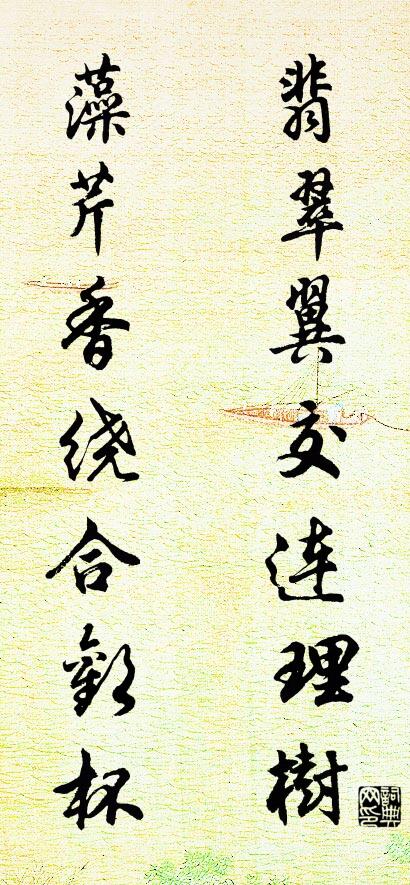 翡翠翼交連理樹
藻芹香绕合歡杯
詞典网印